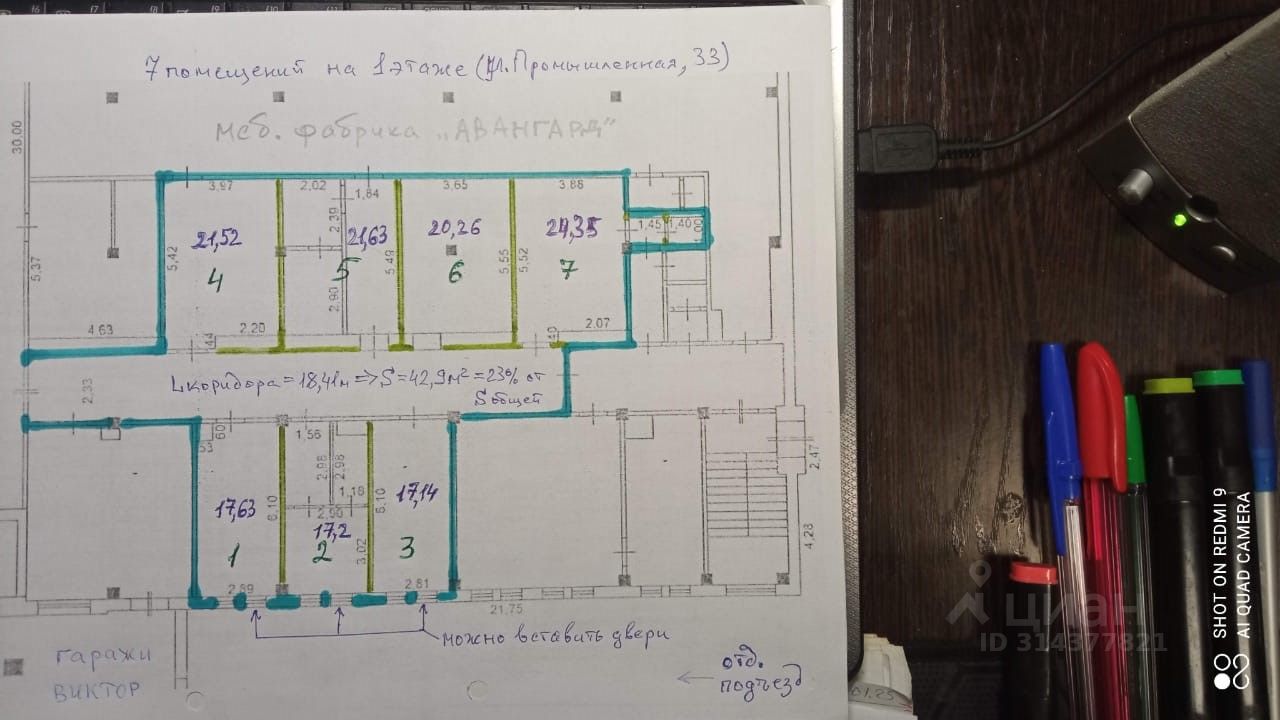 7 помещений на 1 этаже (ул. Промышленная, 33)
меб. фабрика „АВАНГАРД"
30,00
3,97
2,02
1,84
3,65
3,88
2,39
1,45
1,40
1,00
21,52
21,63
20,26
24,35
5,37
5,42
5,49
5,55
5,52
4
5
6
7
2,90
4,63
2,20
2,07
2,33
Lкоридора = 18,41м => S = 42,9м² = 23% от
Sобщей
60
53
1,56
2,98
2,98
1,18
2,90
6,10
6,10
17,63
17,2
17,14
1
2
3
3,02
2,89
2,81
2,47
4,28
21,75
можно вставить двери
гаражи
ВИКТОР
отд.
подъезд
циан
ID 314377821
SHOT ON REDMI 9
AI QUAD CAMERA